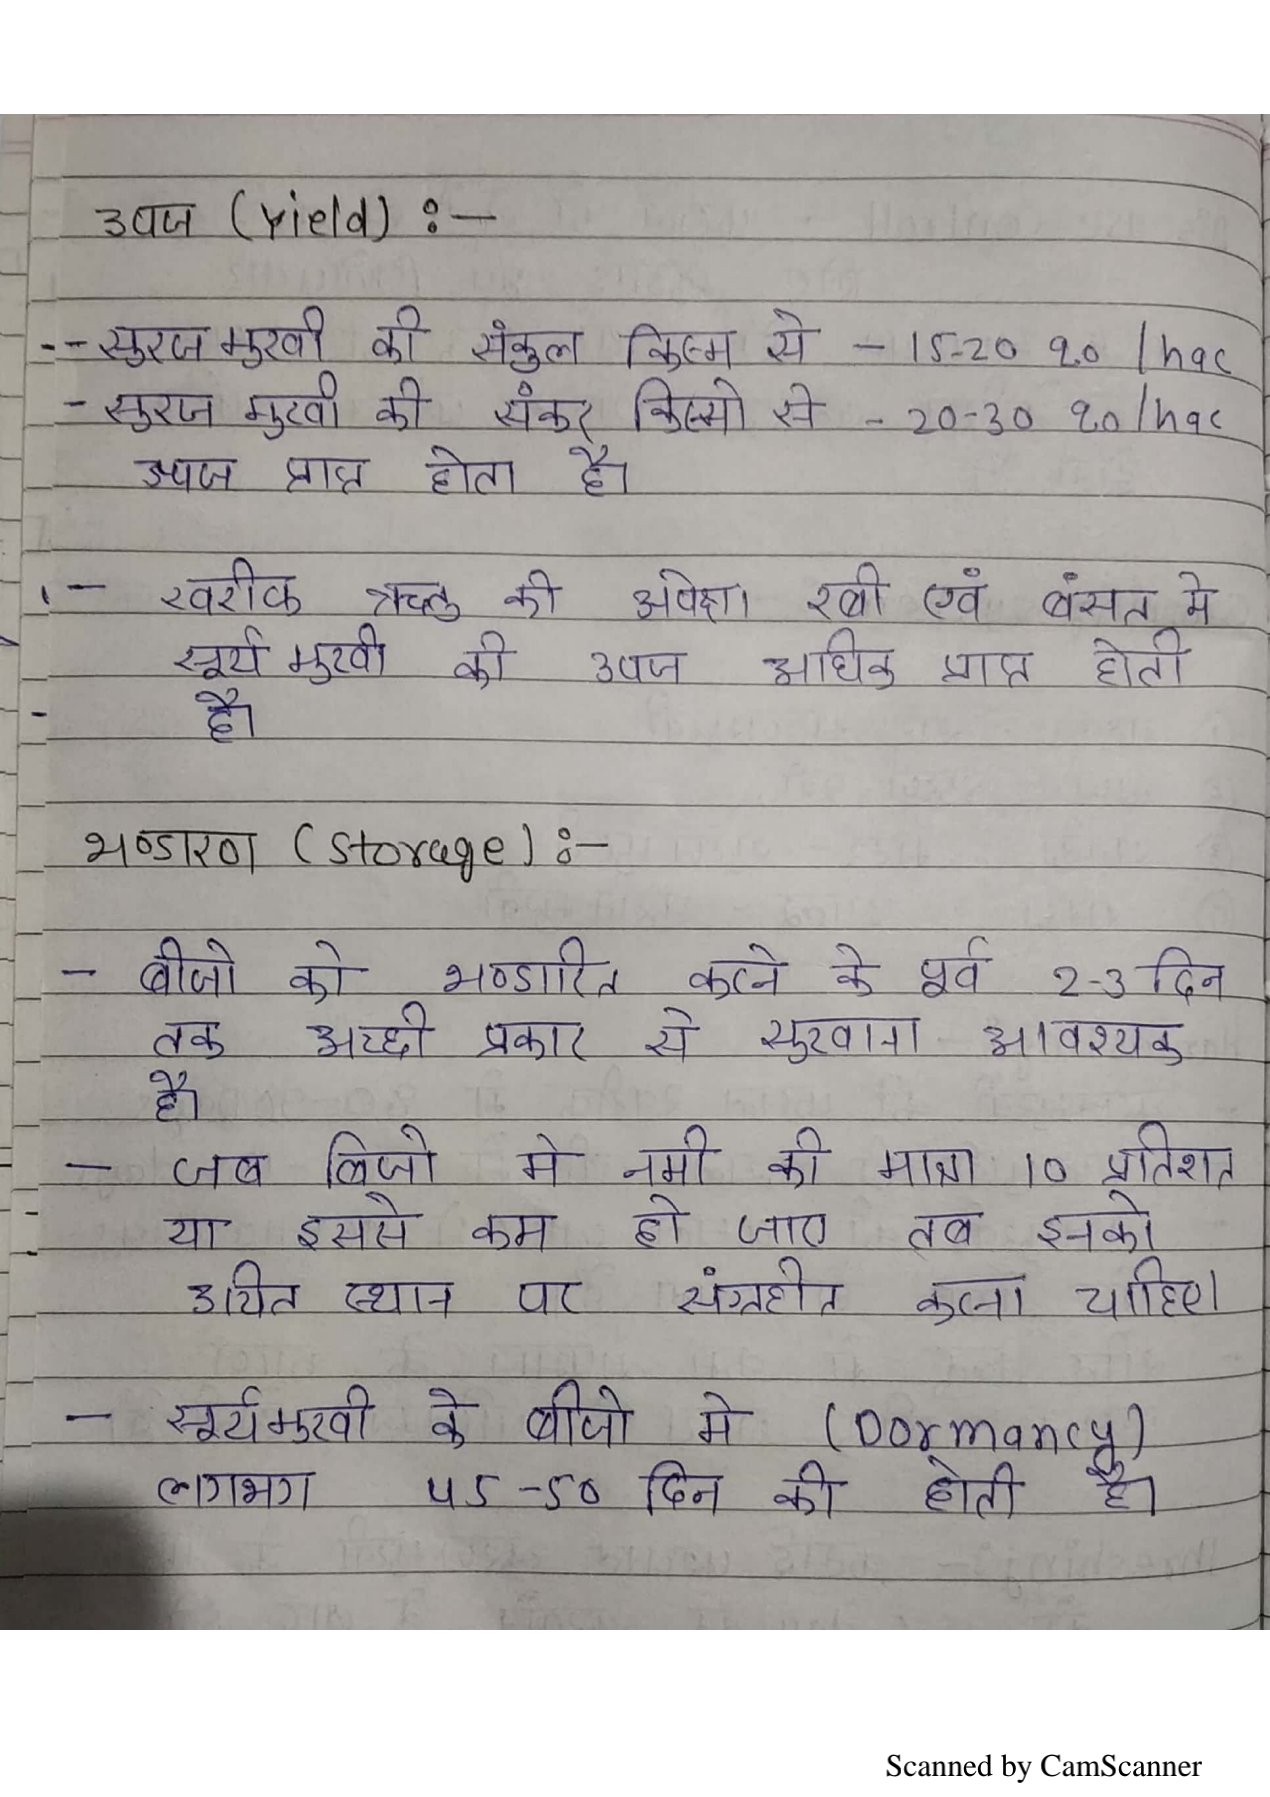 उपज (Yield) :-
-- सुरजमुखी की संकुल किस्म से - 15-20 q.0 / hac
- सुरज मुखी की संकर किस्मो से - 20-30 q.0 / hac
उपज प्राप्त होता है।
- खरीफ ऋतु की अपेक्षा रबी एवं बंसत मे
सूर्यमुखी की उपज अधिक प्राप्त होती
है।
भण्डारण (Storage) :-
- बीजो को भण्डारित करने के पूर्व 2-3 दिन
तक अच्छी प्रकार से सुखाना आवश्यक
है।
- जब बिजो मे नमी की मात्रा 10 प्रतिशत
या इससे कम हो जाए तब इनको
उचित स्थान पर संग्रहीत करना चाहिए।
- सूर्यमुखी के बीजो मे (Dormancy)
लगभग 45-50 दिन की होती है।
Scanned by CamScanner